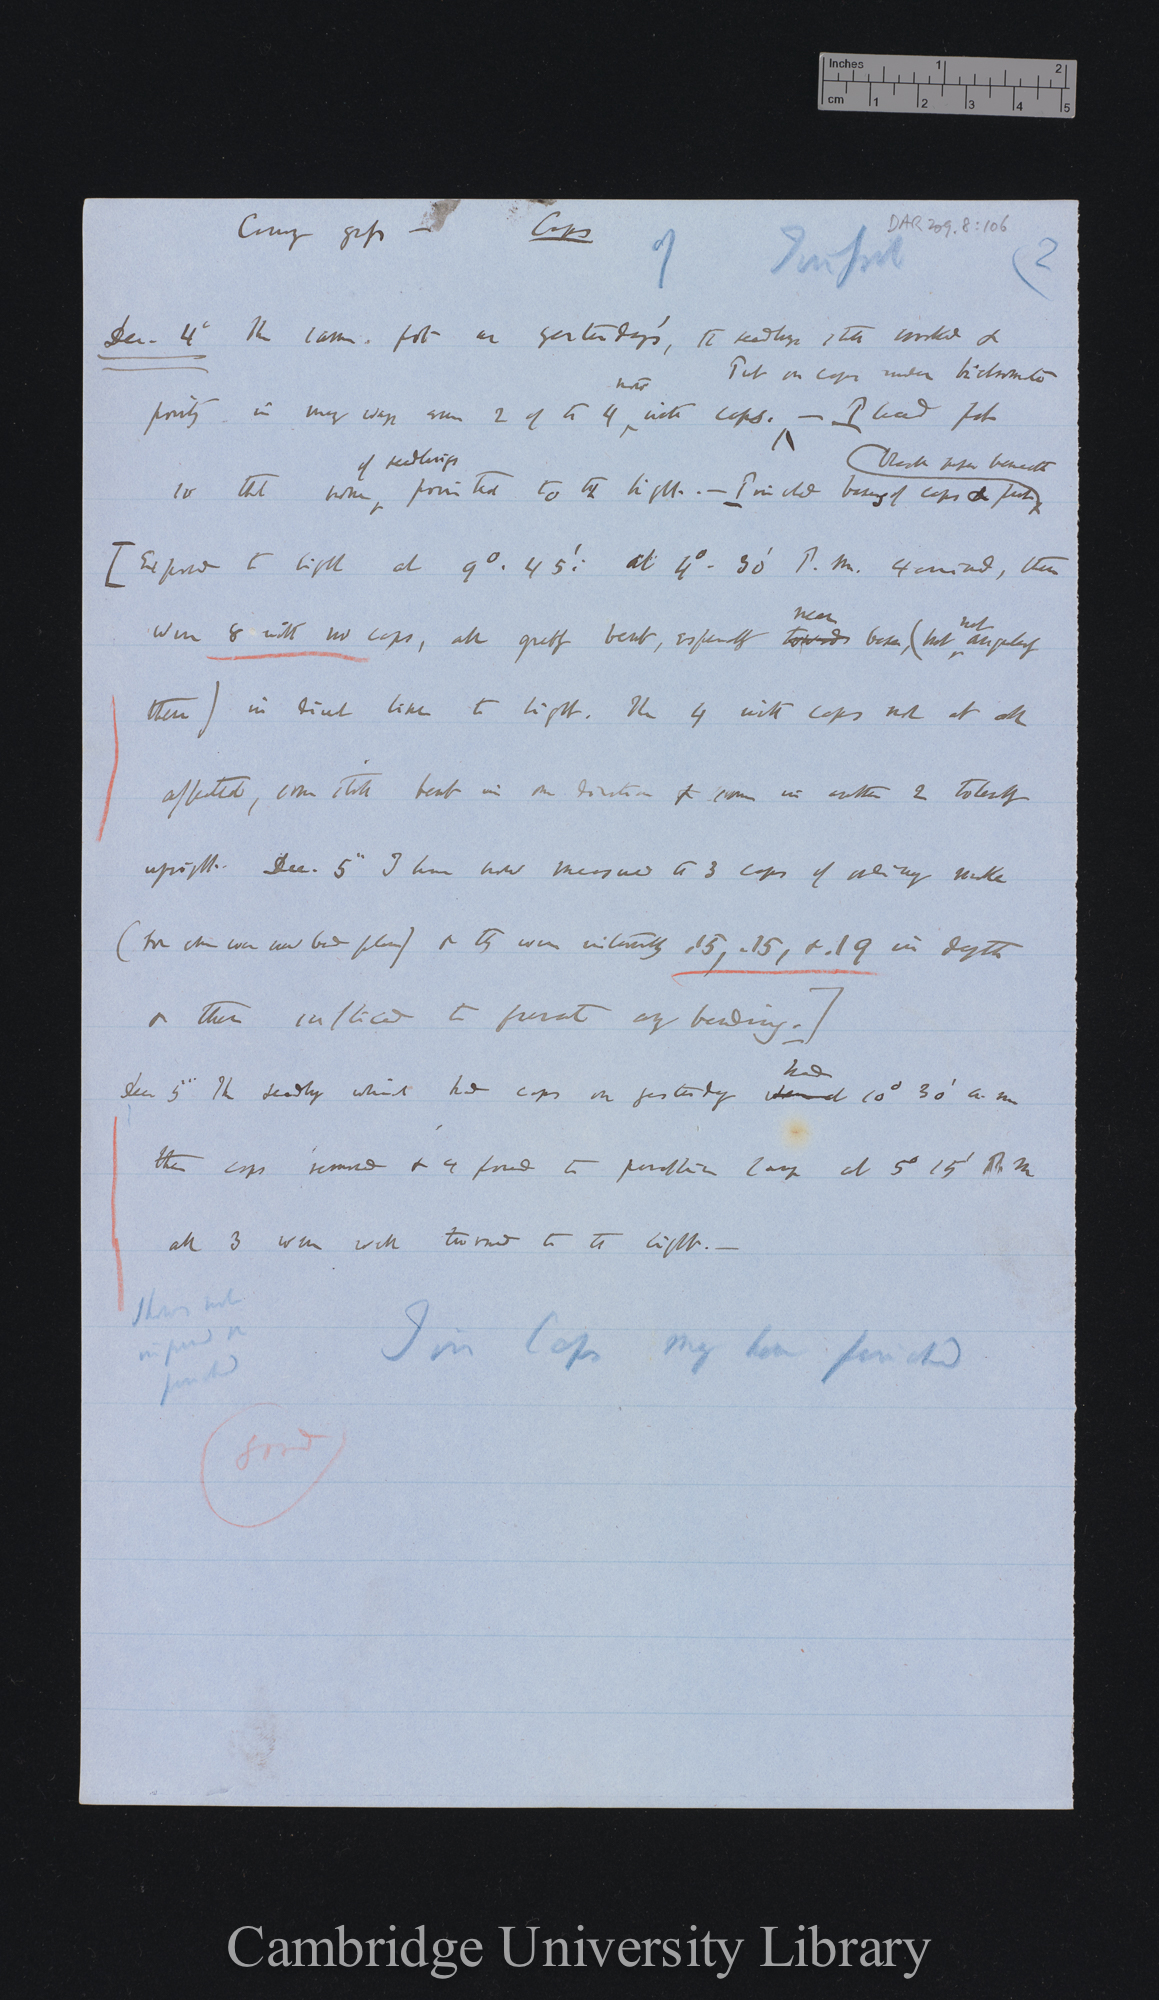 Inches 1 2
cm 1 2 3 4 5
DAR 209.8:106
Canary grass — Caps
of Tinfoil (2
Dec. 4th The same pot as yesterday's, the seedlings still crooked &
Put on caps under bichromate
pointing in many ways even 2 of the 4 now with caps. — I placed pot
of seedlings (Black paper beneath
so that none pointed to the light. — I pinched bases of caps &
[Exposed to light at 9° 45': at 4° 30' P.M. examined, there
near not
were 8 with no caps, all greatly bent, especially towards bases, (but angularly
there) in direct line to light. The 4 with caps not at all
affected, some still bent in one direction & some in other 2 tolerably
upright. Dec. 5th I have now measured the 3 caps of ordinary make
(the other one was bad plan) & they were internally .15, .15, & .19 in depth
& these sufficed to prevent any bending.]
had
Dec 5th The seedlings which had caps on yesterday 10° 30' a.m
their caps removed & 4 found to paraffin lamp at 5° 15' P.M
all 3 were well turned to the light. —
Shows not
injured or
pinched
Tin Caps may have pinched
Good
Cambridge University Library